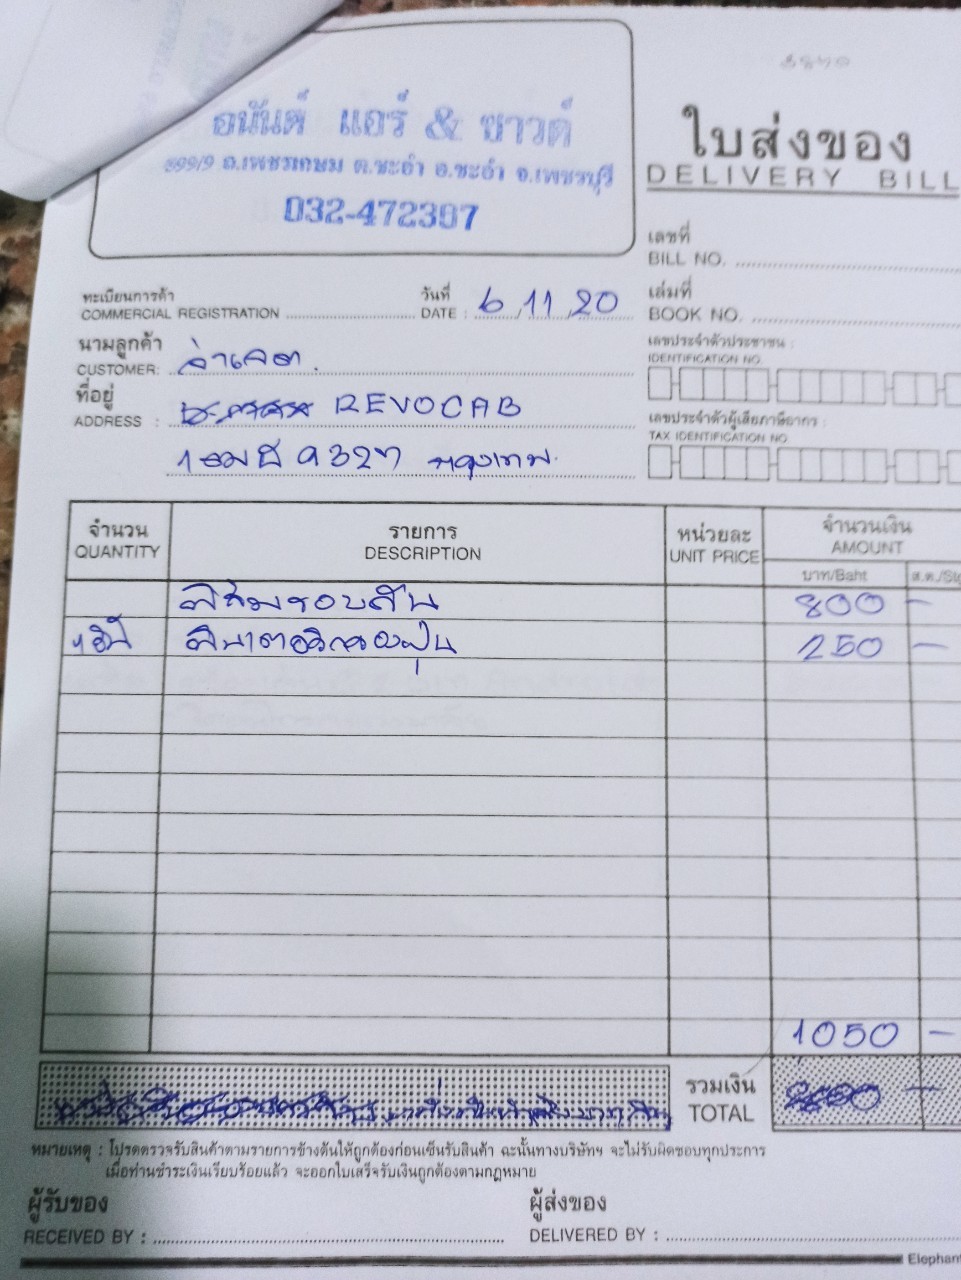 อนันต์ แอร์ & ซาวด์
699/9 ถ.เพชรเกษม ต.ชะอำ อ.ชะอำ จ.เพชรบุรี
032-472397
ใบส่งของ
DELIVERY BILL
เลขที่
BILL NO.
ทะเบียนการค้า
COMMERCIAL REGISTRATION
วันที่
DATE : 6, 11, 20
เล่มที่
BOOK NO.
นามลูกค้า
CUSTOMER: จ่าเจต.
เลขประจำตัวประชาชน :
IDENTIFICATION NO.
ที่อยู่
ADDRESS : REVOCAB
เลขประจำตัวผู้เสียภาษีอากร :
TAX IDENTIFICATION NO
1ฒช 9327 กรุงเทพ
จำนวน
QUANTITY
รายการ
DESCRIPTION
หน่วยละ
UNIT PRICE
จำนวนเงิน
AMOUNT
บาท/Baht
ส.ต./Stg
ฟิล์มรอบคัน 800 -
250 -
1050 -
รวมเงิน
TOTAL
หมายเหตุ : โปรดตรวจรับสินค้าตามรายการข้างต้นให้ถูกต้องก่อนเซ็นรับสินค้า ฉะนั้นทางบริษัทฯ จะไม่รับผิดชอบทุกประการ
เมื่อท่านชำระเงินเรียบร้อยแล้ว จะออกใบเสร็จรับเงินถูกต้องตามกฎหมาย
ผู้รับของ
RECEIVED BY :
ผู้ส่งของ
DELIVERED BY :
Elephant